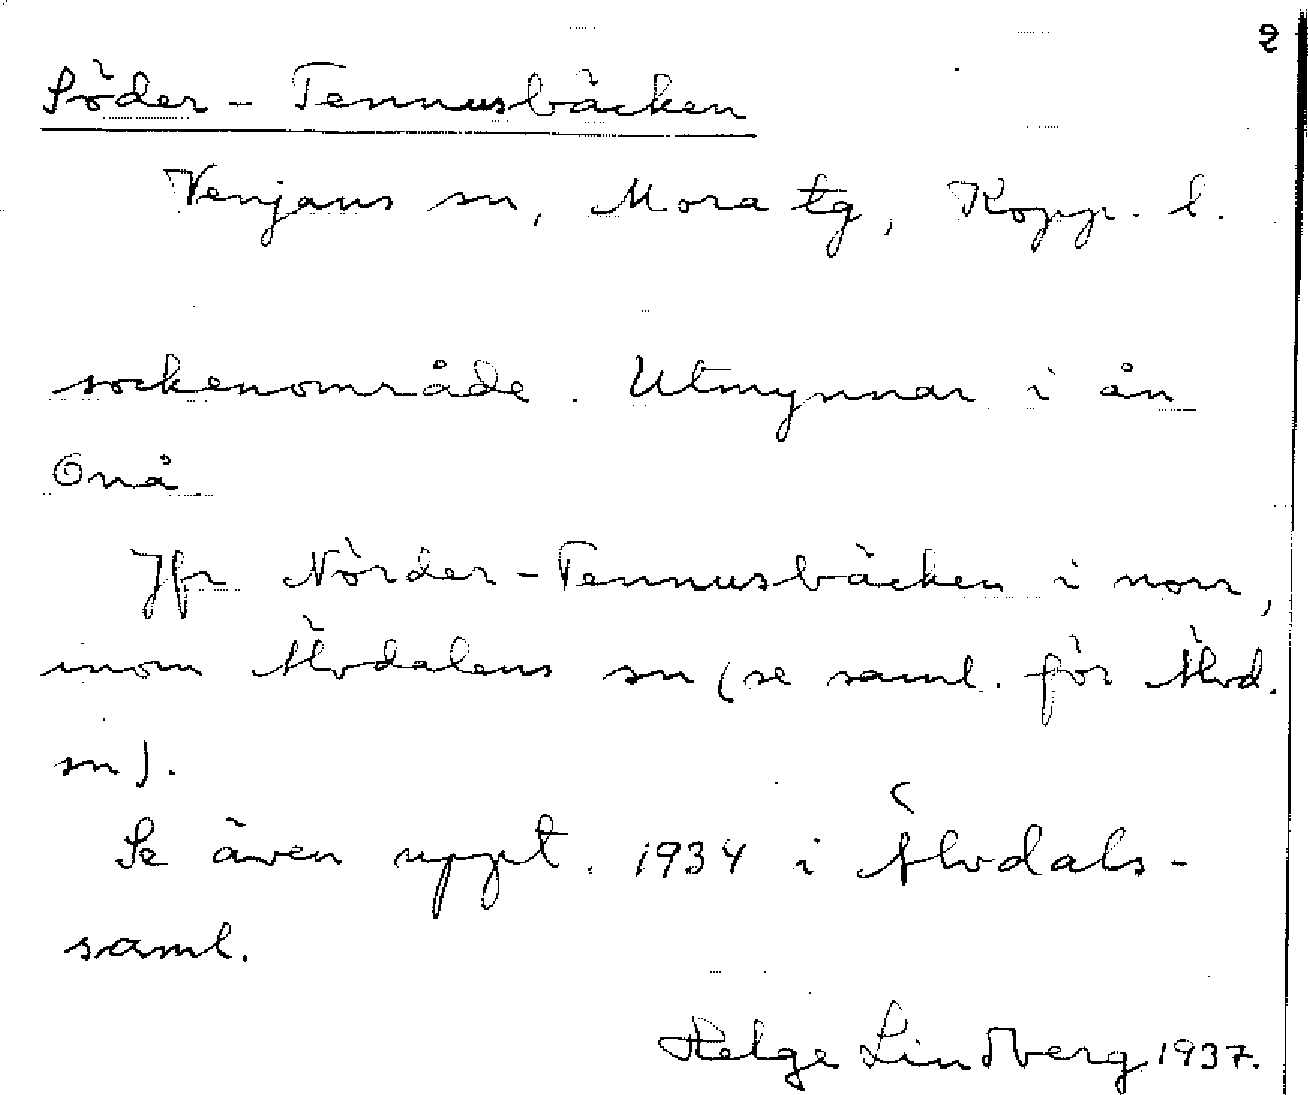 2
Söder-Tennusbäcken
Venjans sn, Mora tg, Kopp. l.
sockenområde. Utmynnar i ån
Onå
Jfr Nörder-Tennusbäcken i norr,
inom Älvdalens sn (se saml. för Älvd.
sn).
Se även uppt. 1934 i Älvdals-
saml.
Helge Lindberg 1937.